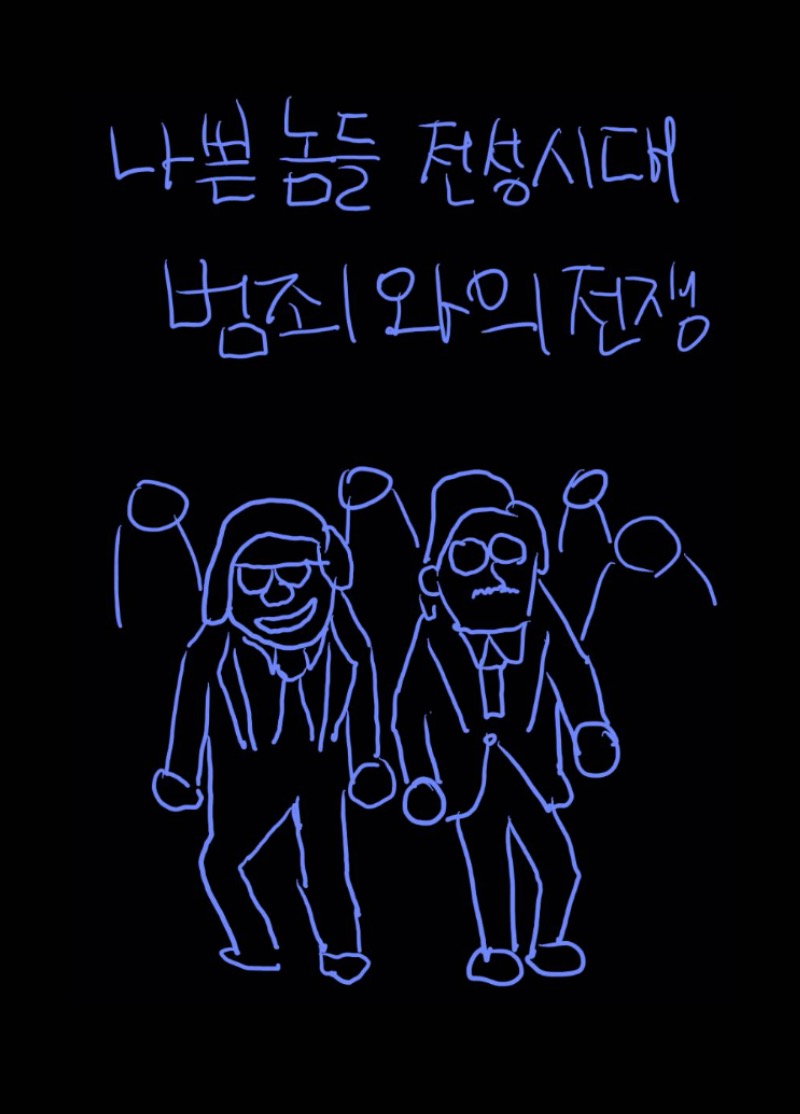 나쁜 놈들 전성시대
범죄와의 전쟁